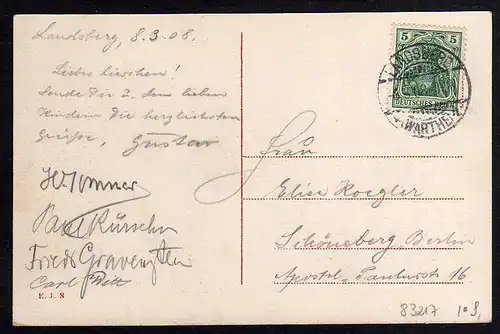 Landsberg, 8.3.08.
Liebes Lieschen!
Sende Dir u. den lieben
Kindern die herzlichsten
Grüße, Gustav
Paul Kürschn
Friedr Gravenstein
Carl
E. J. N
5 5
DEUTSCHES
LANDSBERG
(WARTHE)
Frau
Elise Koegler
Schöneberg Berlin
Apostel-Paulusstr 16
83217 10 9,